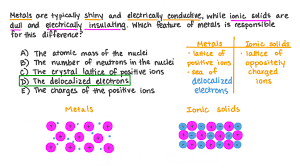 Metals are typically shiny and electrically conductive, while ionic solids are
dull and electrically insulating. Which feature of metals is responsible
for this difference?
A) The atomic mass of the nuclei
B) The number of neutrons in the nuclei
C) The crystal lattice of positive ions
D) The delocalized electrons
E) The charges of the positive ions
Metals Ionic solids
- lattice of - lattice of
positive ions oppositely
- sea of charged
delocalized ions
electrons
Metals Ionic solids